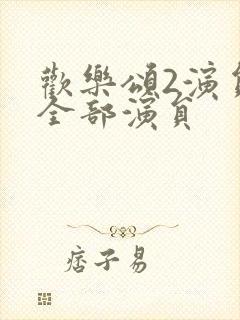 歡樂頌2演員
全部演員
痞子易